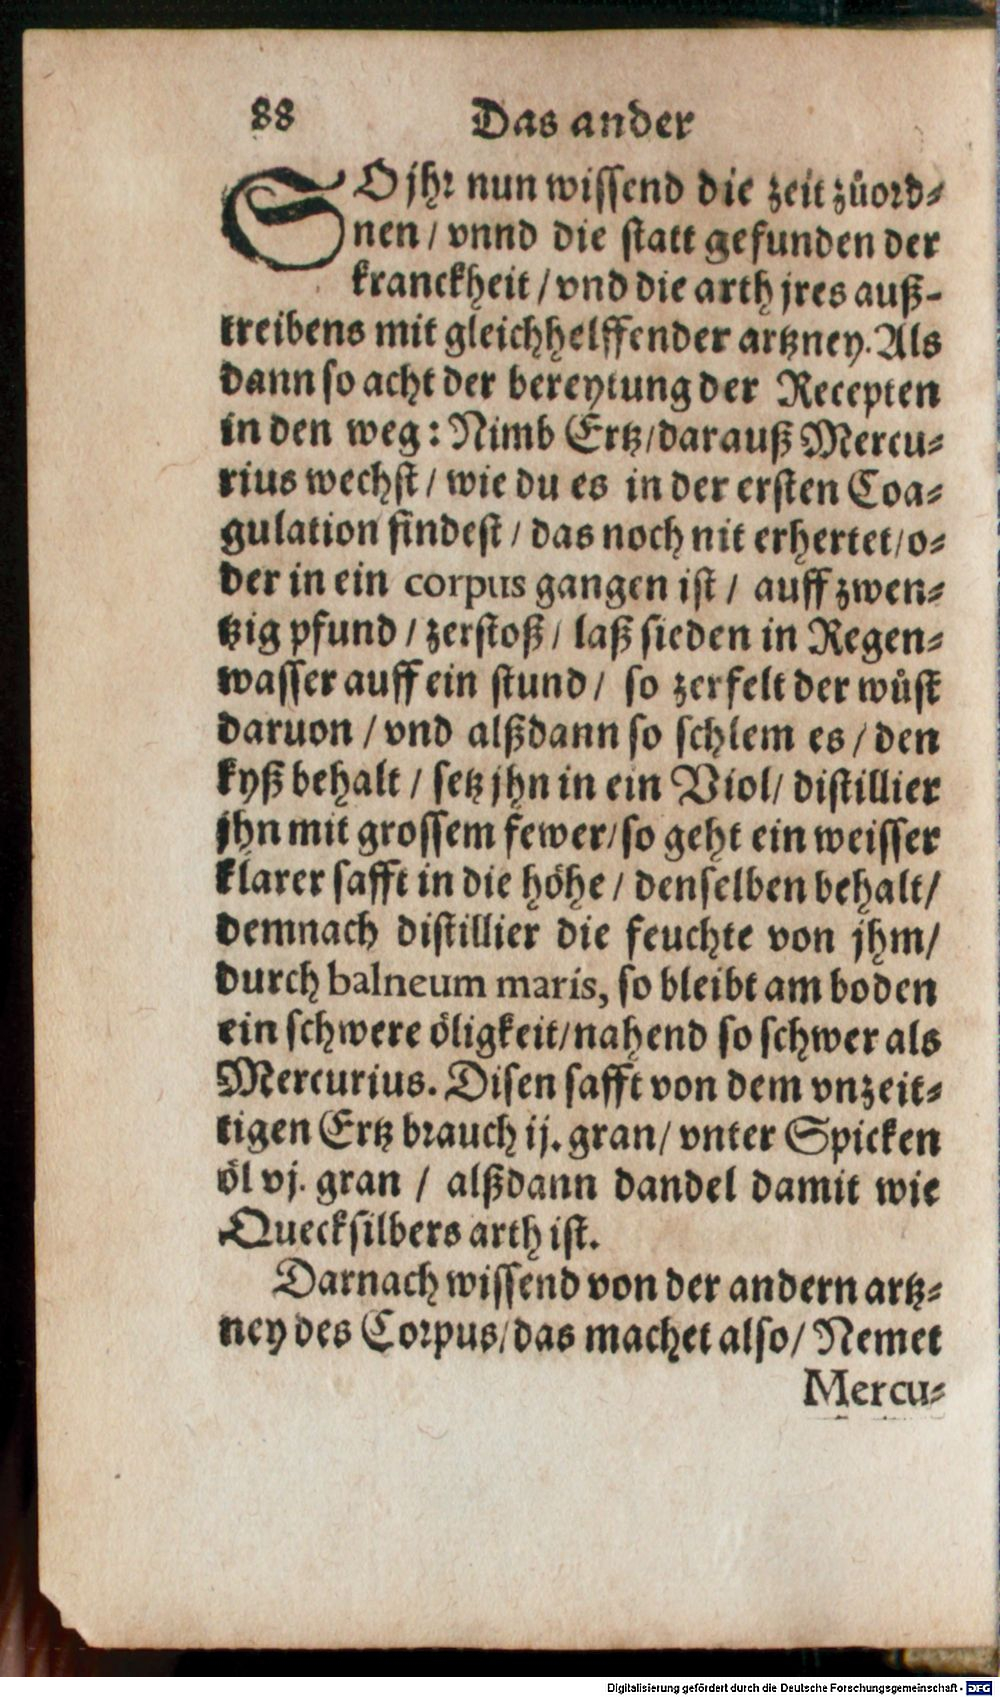 88 Das ander
SO jhr nun wissend die zeit zůord-
nen / vnnd die statt gefunden der
kranckheit / vnd die arth jres auß-
treibens mit gleichhelffender artzney. Als
dann so acht der bereytung der Recepten
in den weg: Nimb Ertz / darauß Mercu-
rius wechst / wie du es in der ersten Coa-
gulation findest / das noch nit erhertet / o-
der in ein corpus gangen ist / auff zwen-
tzig pfund / zerstoß / laß sieden in Regen-
wasser auff ein stund / so zerfelt der wůst
daruon / vnd alßdann so schlem es / den
kyß behalt / setz jhn in ein Viol / distillier
jhn mit grossem fewer / so geht ein weisser
klarer safft in die höhe / denselben behalt /
demnach distillier die feuchte von jhm /
durch balneum maris, so bleibt am boden
ein schwere öligkeit / nahend so schwer als
Mercurius. Disen safft von dem vnzeit-
tigen Ertz brauch ij. gran / vnter Spicken
öl vj. gran / alßdann dandel damit wie
Quecksilbers arth ist.
Darnach wissend von der andern artz-
ney des Corpus / das machet also / Nemet
Mercu-
Digitalisierung gefördert durch die Deutsche Forschungsgemeinschaft - DFG